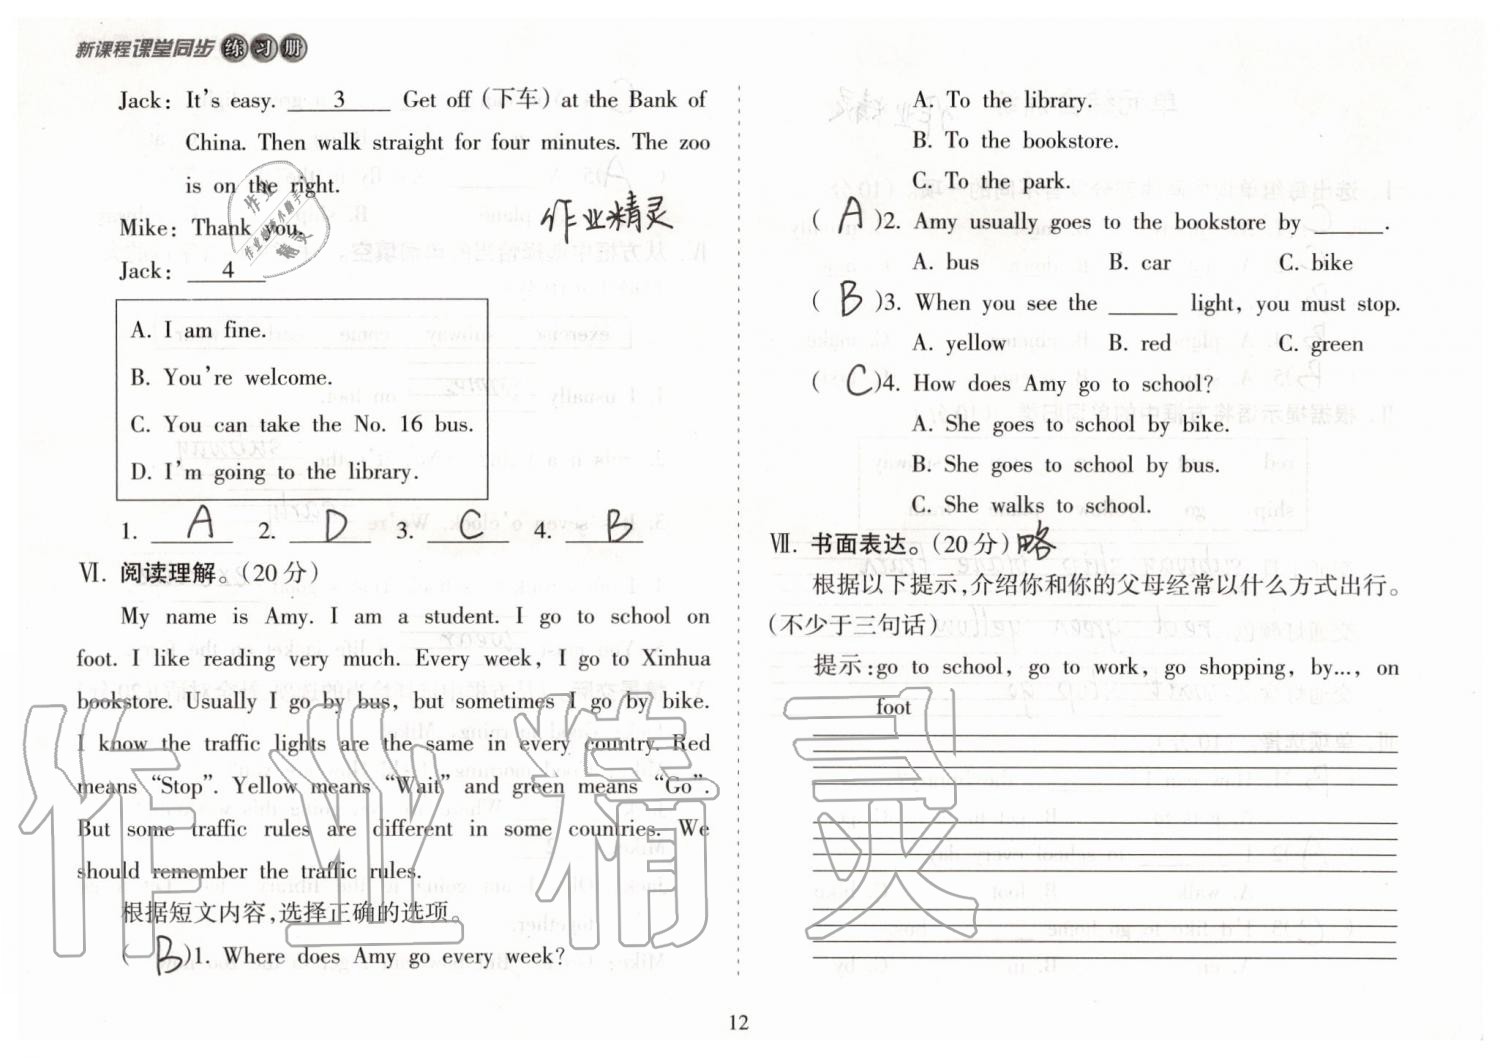 新课程课堂同步练习册
Jack: It's easy. 3 Get off (下车) at the Bank of
China. Then walk straight for four minutes. The zoo
is on the right.
Mike: Thank you.
作业精灵
Jack: 4
A. I am fine.
B. You're welcome.
C. You can take the No. 16 bus.
D. I'm going to the library.
1. A 2. D 3. C 4. B
Ⅵ. 阅读理解。(20分)
My name is Amy. I am a student. I go to school on
foot. I like reading very much. Every week, I go to Xinhua
bookstore. Usually I go by bus, but sometimes I go by bike.
I know the traffic lights are the same in every country. Red
means “Stop”. Yellow means “Wait” and green means “Go”.
But some traffic rules are different in some countries. We
should remember the traffic rules.
根据短文内容,选择正确的选项。
( B )1. Where does Amy go every week?
A. To the library.
B. To the bookstore.
C. To the park.
( A )2. Amy usually goes to the bookstore by ______.
A. bus B. car C. bike
( B )3. When you see the ______ light, you must stop.
A. yellow B. red C. green
( C )4. How does Amy go to school?
A. She goes to school by bike.
B. She goes to school by bus.
C. She walks to school.
Ⅶ. 书面表达。(20分) 略
根据以下提示,介绍你和你的父母经常以什么方式出行。
(不少于三句话)
提示:go to school, go to work, go shopping, by..., on
foot
作业精灵
12